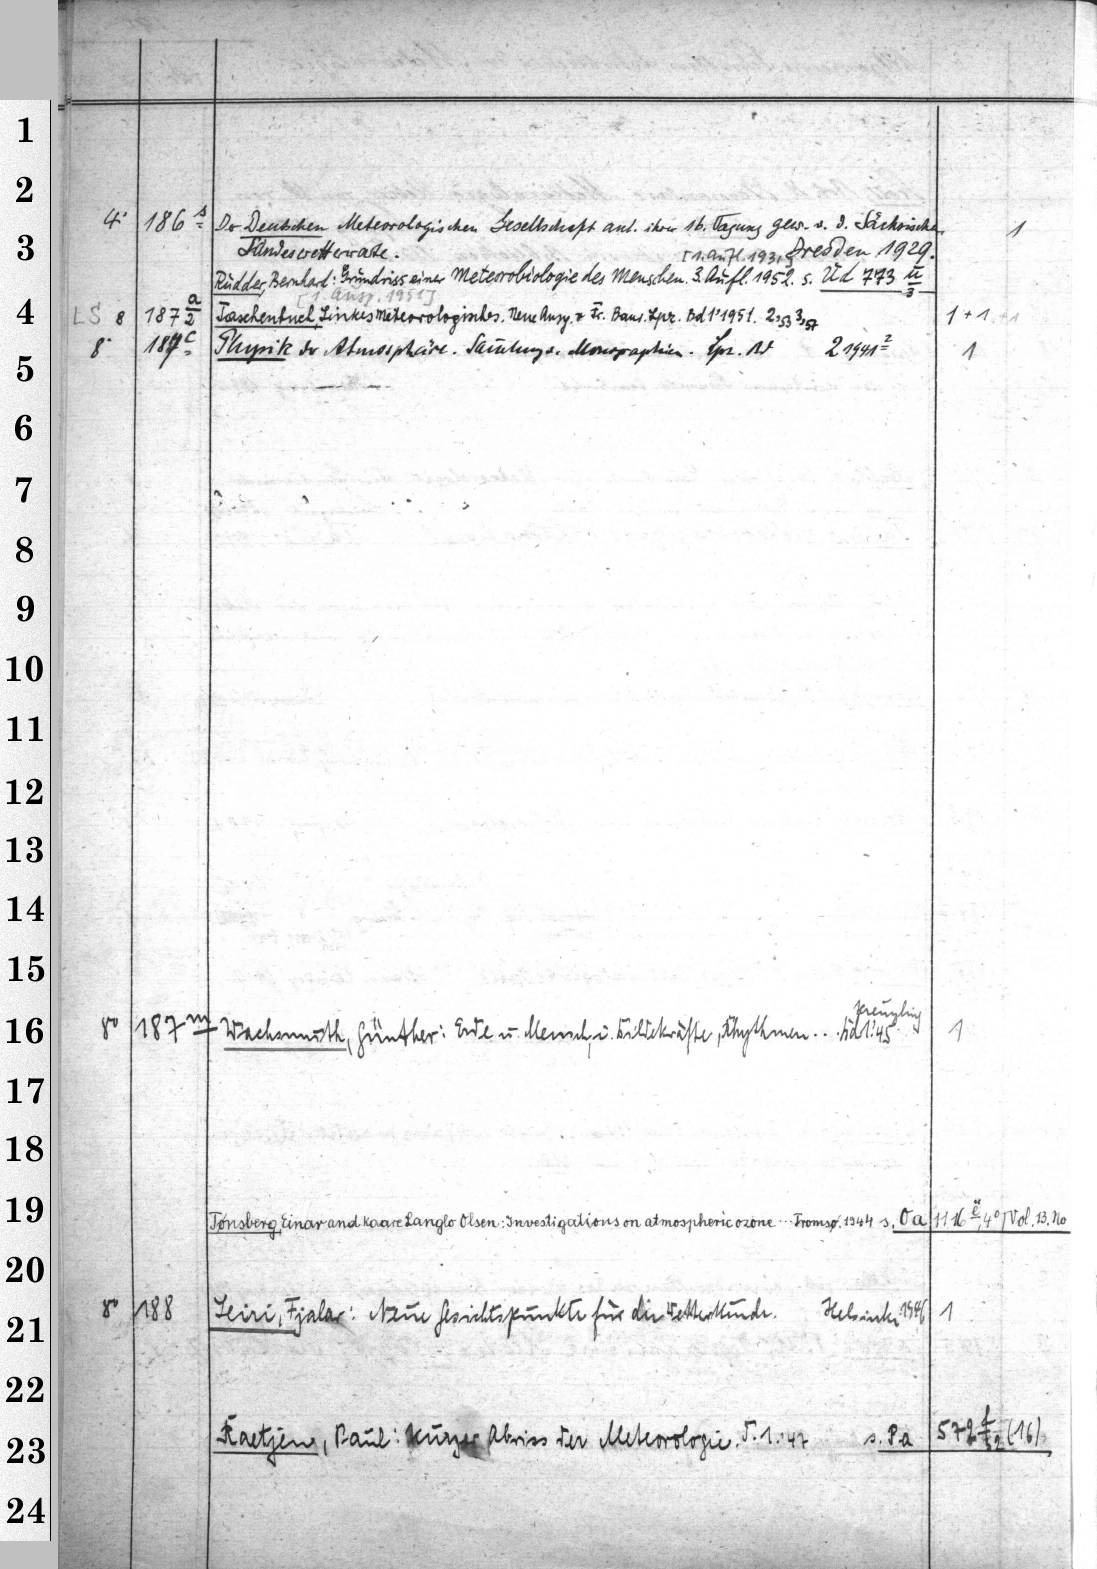 1
2
4° 186 s Der Deutschen Meteorologischen Gesellschaft anl. ihrer 16. Tagung gew. v. d. Sächsischen 1
3
Landeswetterwarte. [1. Aufl. 1931] Dresden 1929.
Rudder, Bernhard: Grundriss einer Meteorobiologie des Menschen. 3. Aufl. 1952. s. Ud 773 u/3
[1. Ausg. 1951]
4 LS 8 187 a/2 Taschenbuch, Linkes Meteorologisches. Neue Ausg. v Fr. Baur. Lpz. Bd 1 1951. 2,53 3,57 1+1 +1
8° 187 c Physik der Atmosphäre. Sammlung v. Monographien. Lpz. Bd 2 1941 2 1
5
6
7
8
9
10
11
12
13
14
15
Kreuzling
16 8° 187 m Wachsmuth, Günther: Erde u. Mensch, i. Bildekräfte, Rhythmen... Bd 1.'45 1
17
18
19 Tønsberg, Einar and Kaare Langlo Olsen: Investigations on atmospheric ozone ... Tromsø. 1944 s. Oa 1116 ë, 4° /Vol. 13, No
20
8° 188 Leiri, Fjalar: Neue Gesichtspunkte für die Wetterkunde. Helsinki 1946 1
21
22
23 Raetjen, Paul: Kurzer Abriss der Meteorologie. T. 1. '47 s. Pa 572 f/52 (16)
24